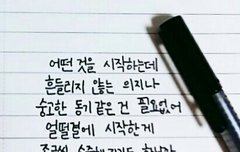 어떤 것을 시작하는데
흔들리지 않는 의지나
숭고한 동기 같은 건 필요없어
얼떨결에 시작한게